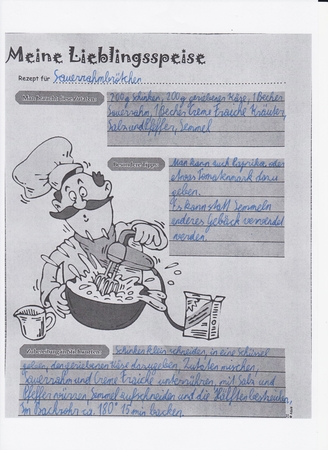 Meine Lieblingsspeise
Rezept für Sauerrahmbrötchen
Man braucht diese Zutaten:
200g Schinken, 200g geriebener Käse, 1 Becher
Sauerrahm, 1 Becher Creme Fraiche Kräuter,
Salz und Pfeffer, Semmel
Besondere Tipps:
Man kann auch Paprika oder
etwas Tomatenmark dazu
geben.
Es kann statt Semmeln
anderes Gebäck verwendet
werden.
Zubereitung in Stichworten:
Schinken klein schneiden, in eine Schüssel
geben, den geriebenen Käse dazugeben. Zutaten mischen,
Sauerrahm und Creme Fraiche unterrühren, mit Salz und
Pfeffer würzen, Semmel aufschneiden und die Hälften bestreichen,
Im Backrohr ca. 180° 15 min backen.